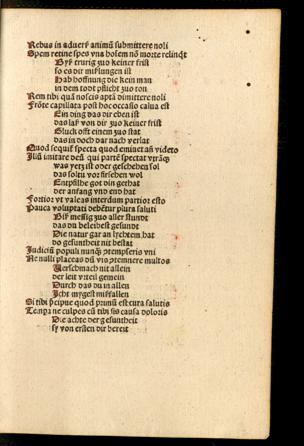 Rebus in aduersꝭ animū submittere noli
Spem retine spes vna hoīem nō morte relinq̄t
Byß trurig zuo keiner frist
so es dir mißlungen ist
Hab hoffnung die kein man
in dem todt pflicht zuo ron
Rem tibi quā noscis aptā dimittere noli
Frōte capillata post hoc occasio calua est
Ein ding das dir eben ist
das laß von dir zuo keiner frist
Gluck offt einem zuo stat
das in doch dar nach verlat
Quod sequiť specta quod eminet an̄ videto
Illū imitare deū qui partē spectat vtrāqꝫ
was yetz ist oder geschehen sol
das soltu vor besehen wol
Entpfilhe got din gethat
der anfang vnd end hat
Fortior vt valeas interdum partior esto
Pauca voluptati debētur plura saluti
Biß messig zuo aller stundt
das du beleibest gesundt
Die natur gar an lychtem hat
do gesuntheit nit bestat
Judiciū populi nunqꝫ ↄtempseris vni
Ne nulli placeas dū vis ↄtemnere multos
Verschmach nit allein
der leit vrteil gemein
Durch das du in allen
Icht mygest mißfallen
Si tibi p̄cipue quod primū est cura salutis
Tempora ne culpes cū tibi sis causa doloris
Die achte der gesuntheit
sy von ersten dir bereit